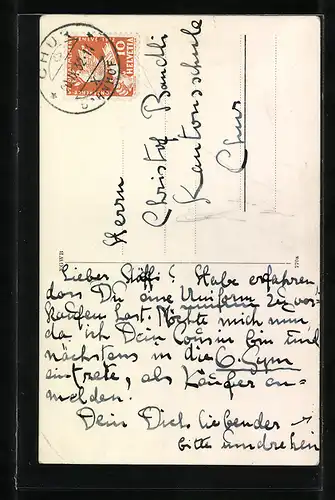 CHUR
HELVETIA
10
Herrn
Christof Bandli
Kantonsschule
Chur
7708
Lieber Stöffi! Habe erfahren,
dass Du eine Uniform zu ver-
kaufen hast. Möchte mich nun
da ich Dein Cousin bin und
nächstens in die 6. Gym
eintrete, als Käufer an-
melden.
Dein Dich liebender
bitte umdrehen